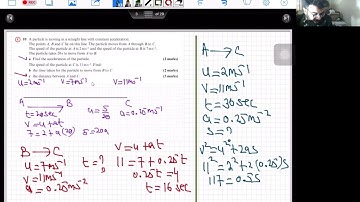 19 A particle is moving in a straight line with constant acceleration.
The points A, B and C lie on this line. The particle moves from A through B to C.
The speed of the particle at A is 2 m s⁻¹ and the speed of the particle at B is 7 m s⁻¹.
The particle takes 20 s to move from A to B.
a Find the acceleration of the particle. (2 marks)
The speed of the particle at C is 11 m s⁻¹. Find
b the time taken for the particle to move from B to C (2 marks)
c the distance between A and C. (3 marks)
u=2ms⁻¹ v=7ms⁻¹ v=11ms⁻¹
A B C
t=20sec a=5/20 a=0.25ms⁻²
v=u+at
7=2+a(20) 5=20a
B → C
u=7ms⁻¹ t=?
v=11ms⁻¹
a=0.25ms⁻²
v=u+at
11=7+0.25t
0.25t=4
t=16sec
A → C
u=2ms⁻¹
v=11ms⁻¹
t=36sec
a=0.25ms⁻²
s=?
v²=u²+2as
11²=2²+2(0.25)s
117=0.5s